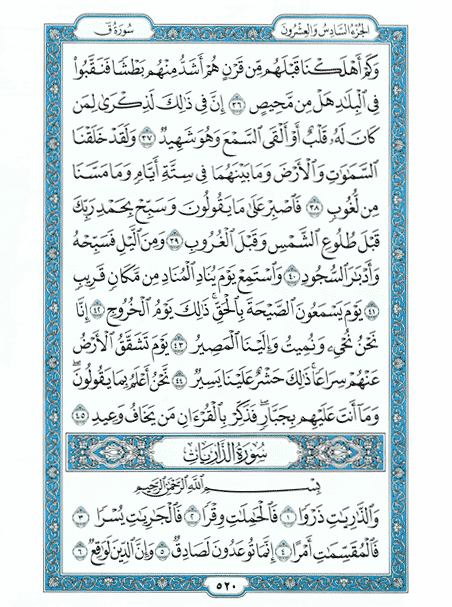 الجزء السادس والعشرون سورة ق
وَكَمْ أَهْلَكْنَا قَبْلَهُم مِّن قَرْنٍ هُمْ أَشَدُّ مِنْهُم بَطْشًا فَنَقَّبُوا۟
فِى ٱلْبِلَٰدِ هَلْ مِن مَّحِيصٍ ٣٦ إِنَّ فِى ذَٰلِكَ لَذِكْرَىٰ لِمَن
كَانَ لَهُۥ قَلْبٌ أَوْ أَلْقَى ٱلسَّمْعَ وَهُوَ شَهِيدٌ ٣٧ وَلَقَدْ خَلَقْنَا
ٱلسَّمَٰوَٰتِ وَٱلْأَرْضَ وَمَا بَيْنَهُمَا فِى سِتَّةِ أَيَّامٍ وَمَا مَسَّنَا
مِن لُّغُوبٍ ٣٨ فَٱصْبِرْ عَلَىٰ مَا يَقُولُونَ وَسَبِّحْ بِحَمْدِ رَبِّكَ
قَبْلَ طُلُوعِ ٱلشَّمْسِ وَقَبْلَ ٱلْغُرُوبِ ٣٩ وَمِنَ ٱلَّيْلِ فَسَبِّحْهُ
وَأَدْبَٰرَ ٱلسُّجُودِ ٤٠ وَٱسْتَمِعْ يَوْمَ يُنَادِ ٱلْمُنَادِ مِن مَّكَانٍ قَرِيبٍ
٤١ يَوْمَ يَسْمَعُونَ ٱلصَّيْحَةَ بِٱلْحَقِّ ۚ ذَٰلِكَ يَوْمُ ٱلْخُرُوجِ ٤٢ إِنَّا
نَحْنُ نُحْىِۦ وَنُمِيتُ وَإِلَيْنَا ٱلْمَصِيرُ ٤٣ يَوْمَ تَشَقَّقُ ٱلْأَرْضُ
عَنْهُمْ سِرَاعًا ۚ ذَٰلِكَ حَشْرٌ عَلَيْنَا يَسِيرٌ ٤٤ نَّحْنُ أَعْلَمُ بِمَا يَقُولُونَ ۖ
وَمَآ أَنتَ عَلَيْهِم بِجَبَّارٍ ۖ فَذَكِّرْ بِٱلْقُرْءَانِ مَن يَخَافُ وَعِيدِ ٤٥
سورة الذاريات
بِسْمِ ٱللَّهِ ٱلرَّحْمَٰنِ ٱلرَّحِيمِ
وَٱلذَّٰرِيَٰتِ ذَرْوًا ١ فَٱلْحَٰمِلَٰتِ وِقْرًا ٢ فَٱلْجَٰرِيَٰتِ يُسْرًا ٣
فَٱلْمُقَسِّمَٰتِ أَمْرًا ٤ إِنَّمَا تُوعَدُونَ لَصَادِقٌ ٥ وَإِنَّ ٱلدِّينَ لَوَٰقِعٌ ٦
٥٢٠